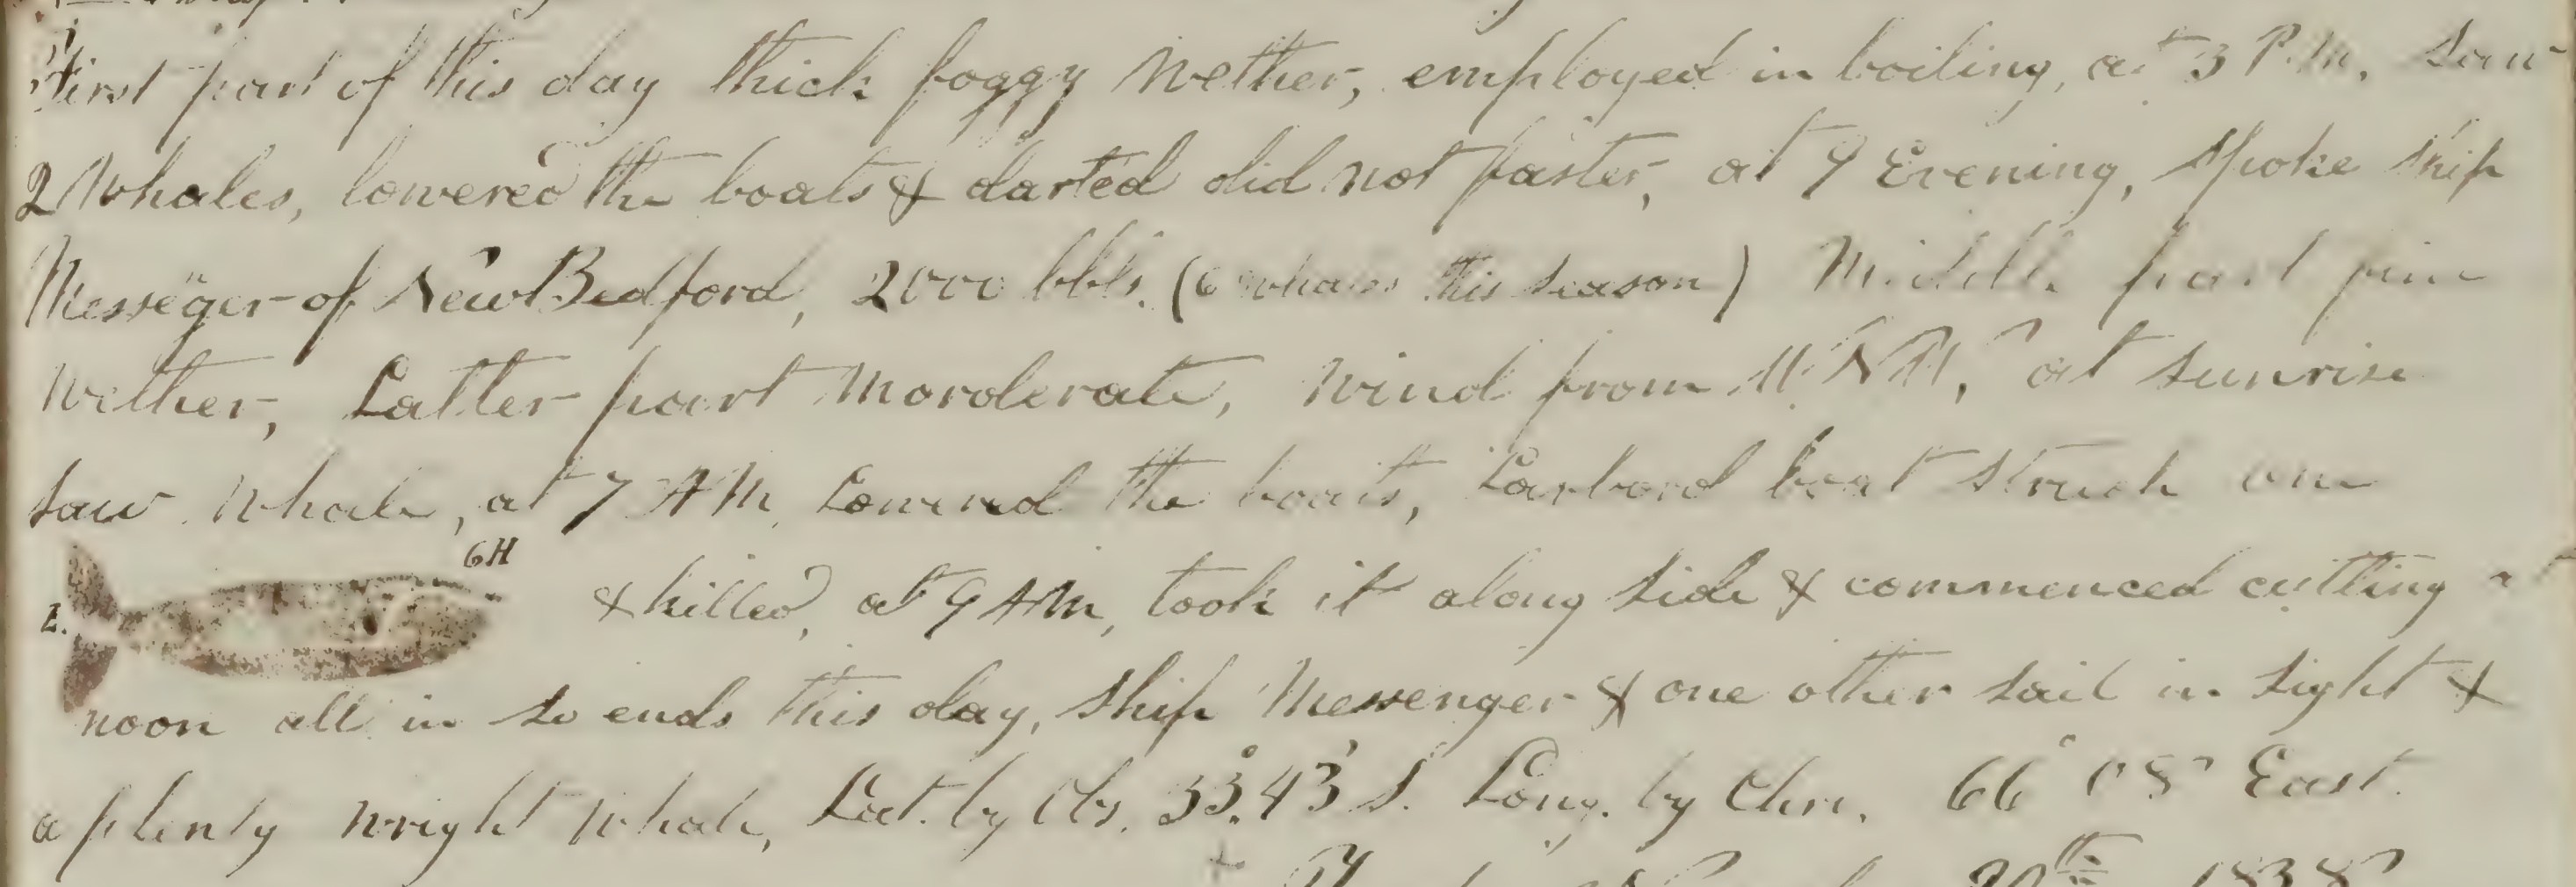 First part of this day thick foggy Wether, employed in boiling, at 3 P.M. Saw
2 Whales, lowered the boats & darted did not fasten, at 9 Evening, Spoke Ship
Messeger of New Bedford, 2000 bbls. (6 whales this season) Middle part fine
Wether, Latter part Morderate, Wind from W.N.W, at sunrise
saw Whale, at 7 AM. Lowered the boats, Larbord boat struck one
6H
& killed, at 9 AM, took it along side & commenced cutting at
L.
noon all in so ends this day, Ship Messenger & one other sail in sight &
a plenty wright Whale, Lat. by Obs. 33°.43' S. Long. by Chr. 66° 08' East.
20th 1838